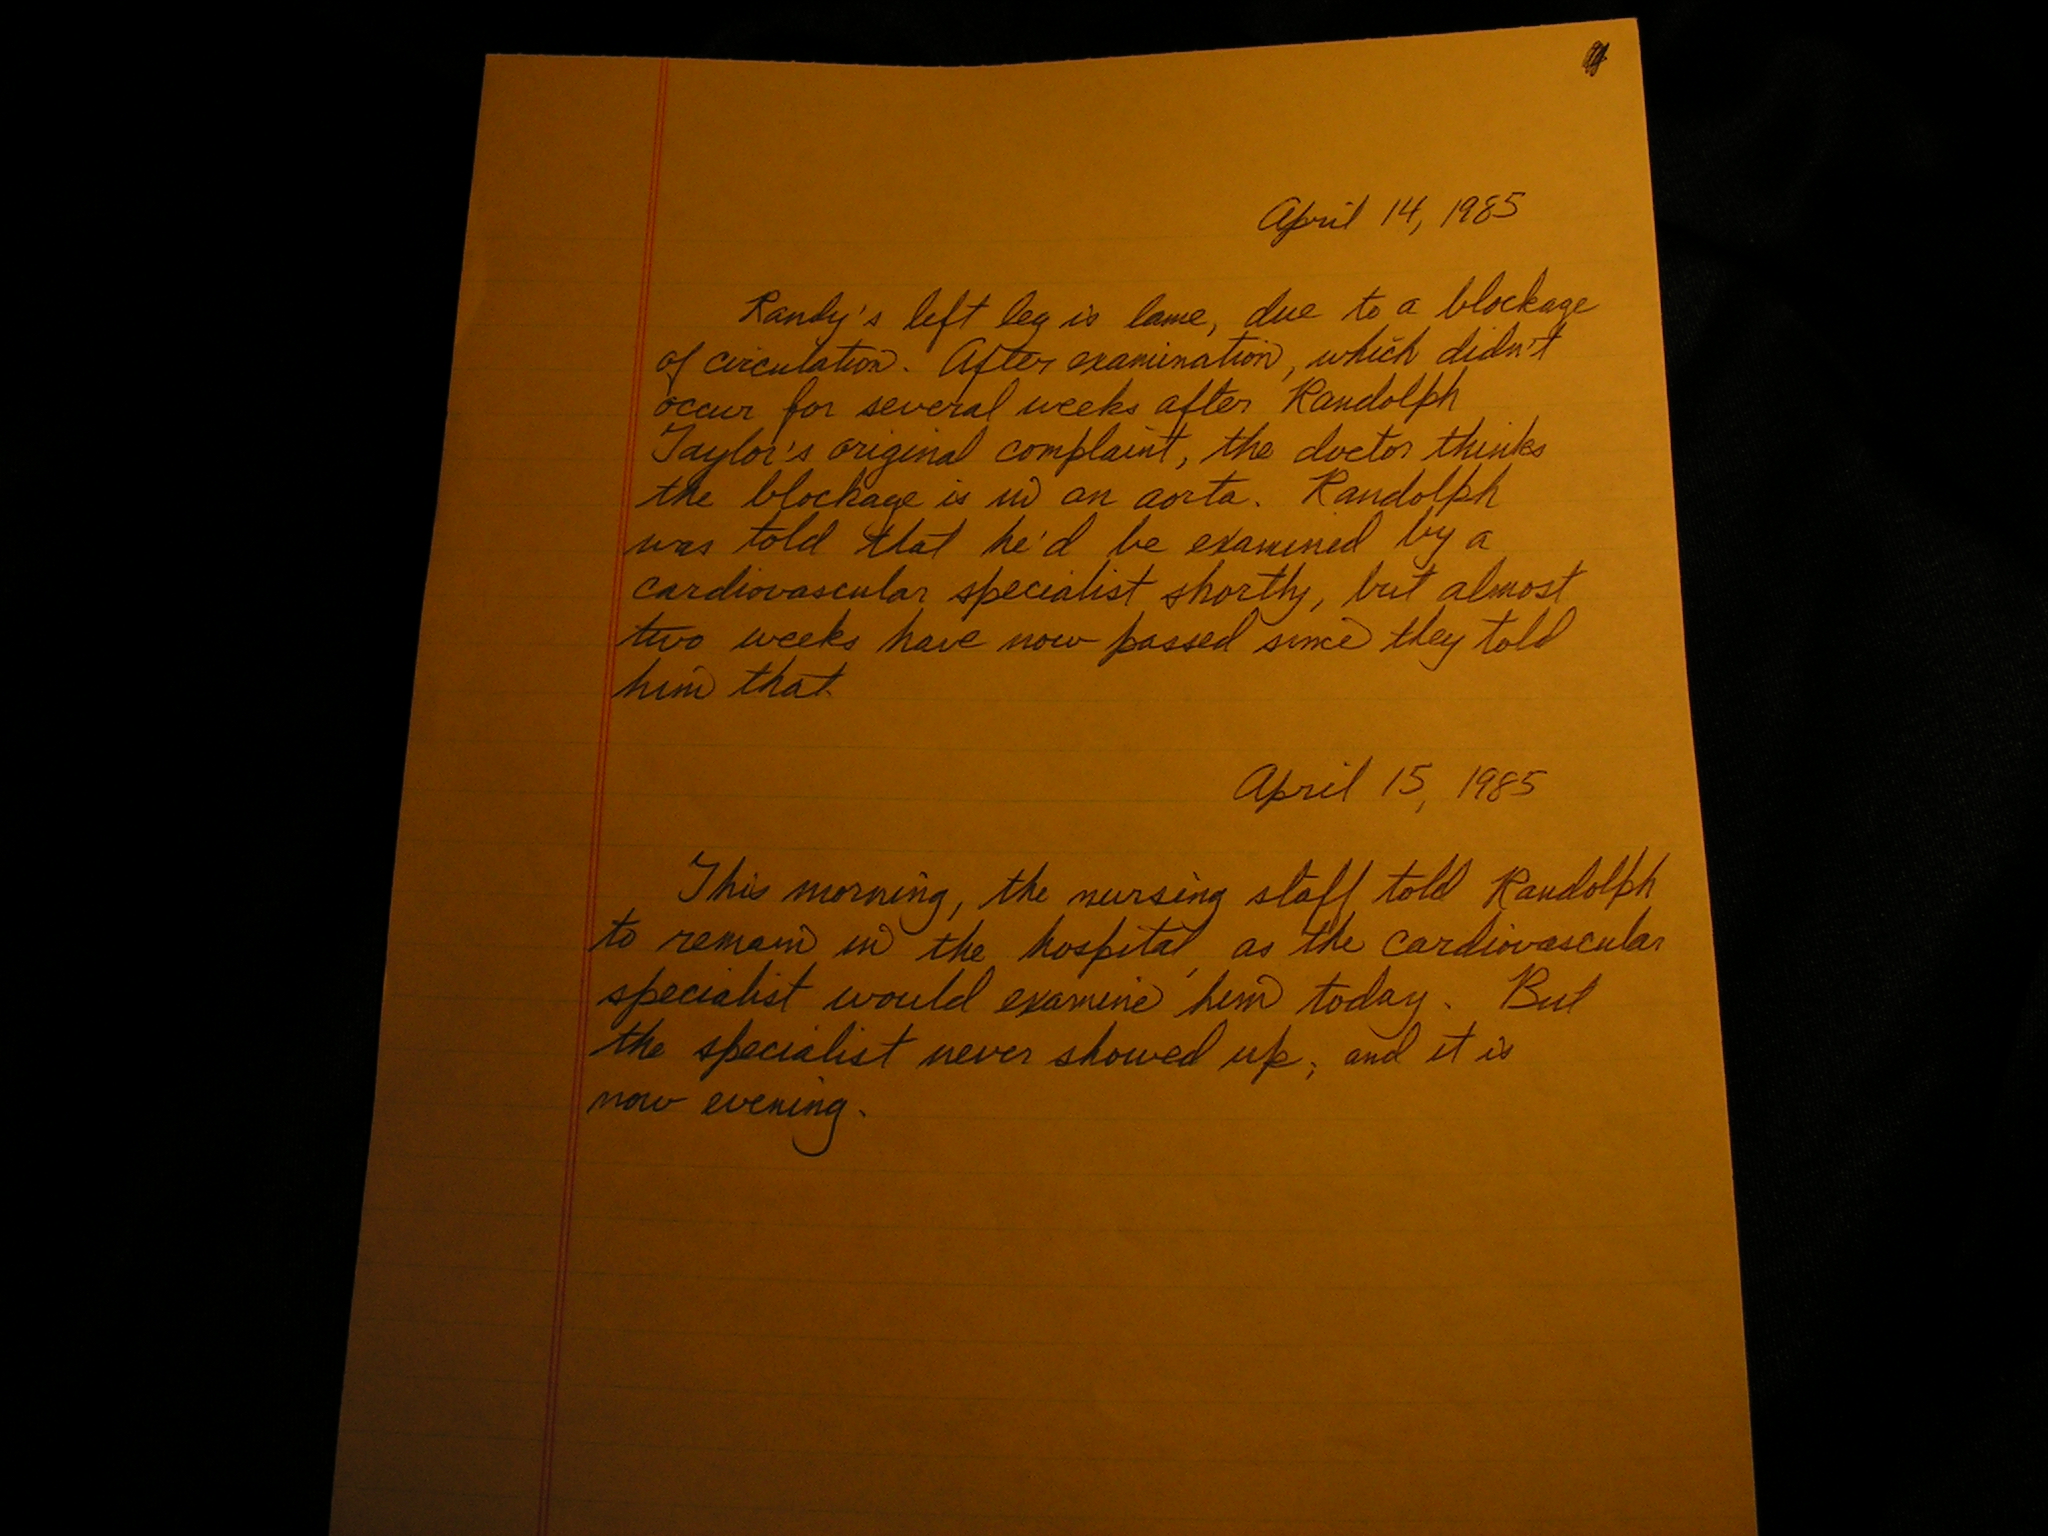 April 14, 1985
Randy's left leg is lame, due to a blockage
of circulation. After examination, which didn't
occur for several weeks after Randolph
Taylor's original complaint, the doctor thinks
the blockage is in an aorta. Randolph
was told that he'd be examined by a
cardiovascular specialist shortly, but almost
two weeks have now passed since they told
him that.
April 15, 1985
This morning, the nursing staff told Randolph
to remain in the hospital, as the cardiovascular
specialist would examine him today. But
the specialist never showed up; and it is
now evening.